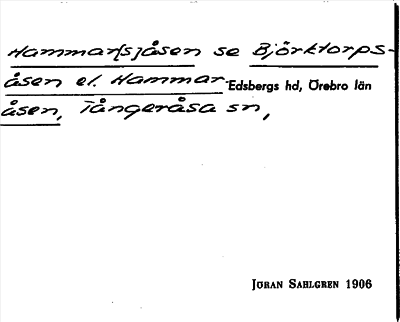 Hammar[s]åsen se Björktorps-
åsen el. Hammar- Edsbergs hd, Örebro län
åsen, Tångeråsa sn,
JÖRAN SAHLGREN 1906